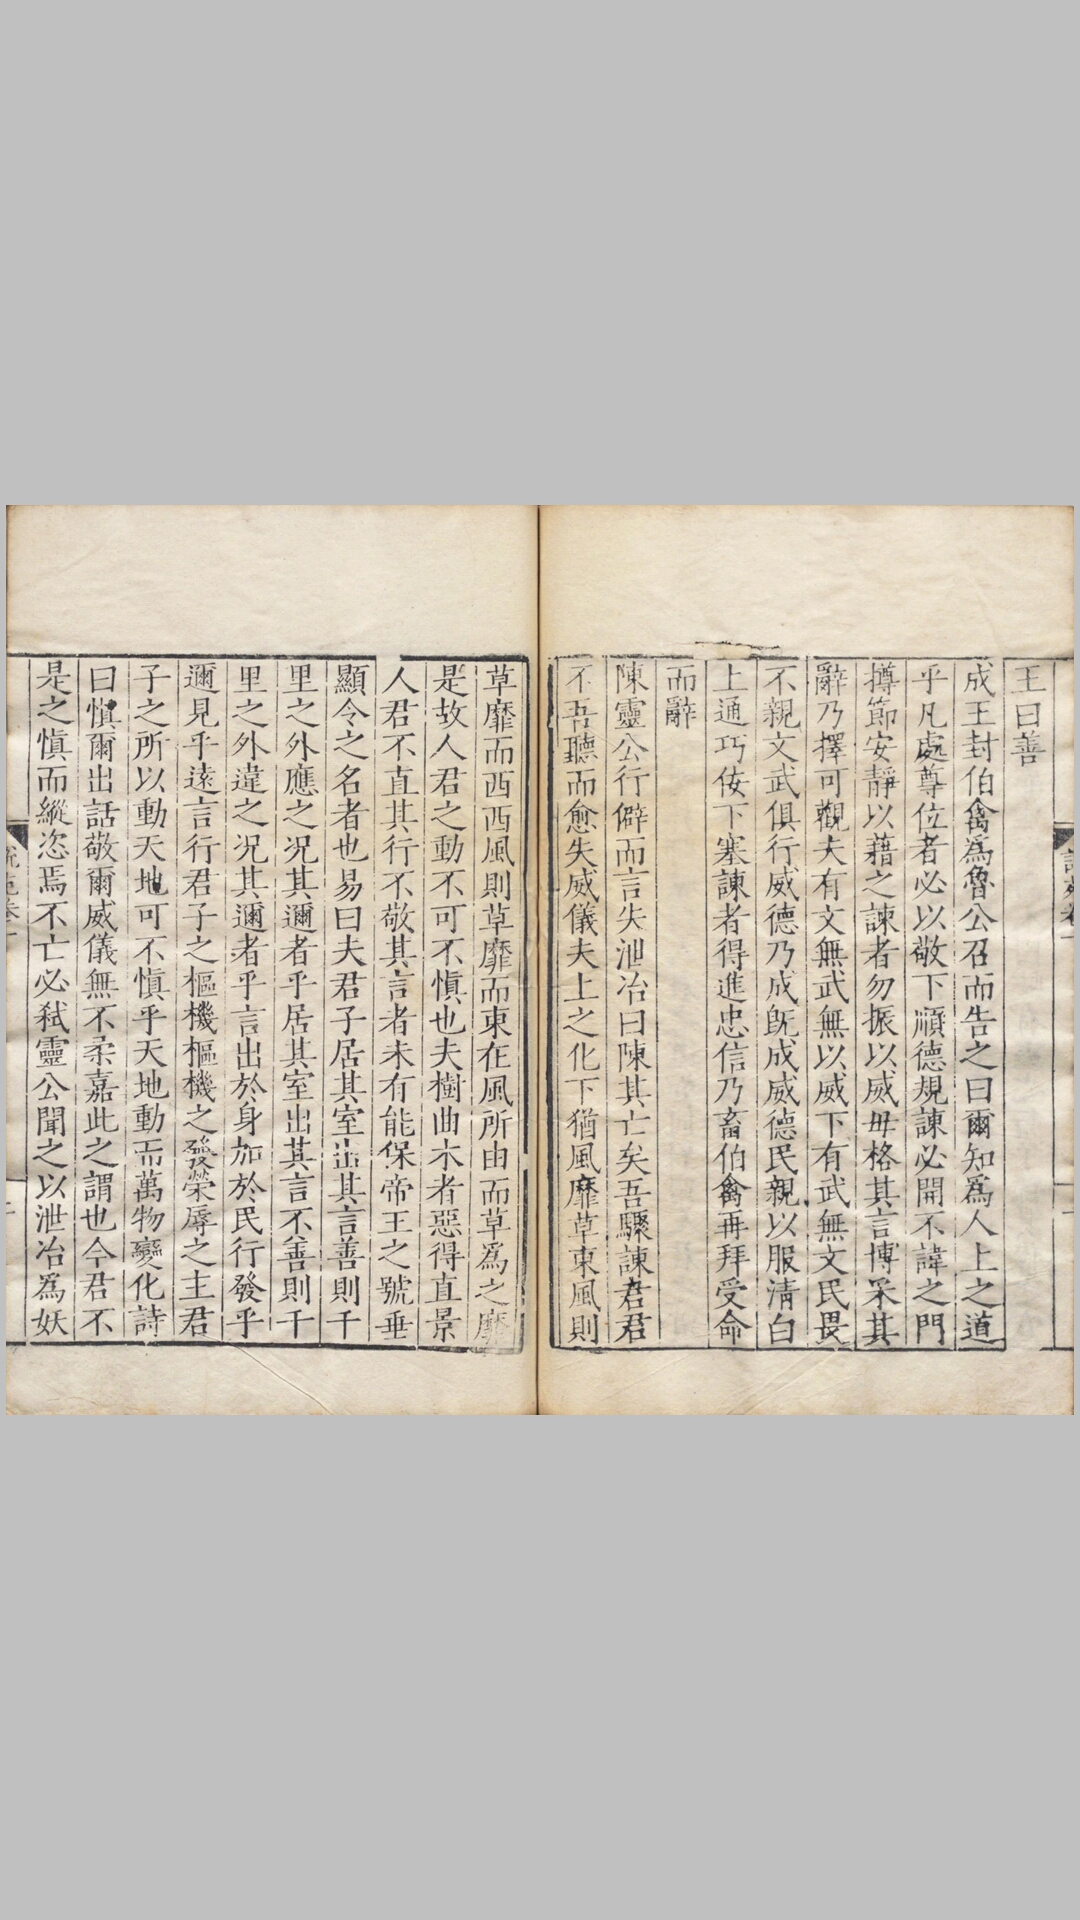 王曰善
成王封伯禽爲魯公召而告之曰爾知爲人上之道
乎凡處尊位者必以敬下順德規諫必開不諱之門
撙節安靜以藉之諫者勿振以威毋格其言博采其
辭乃擇可觀夫有文無武無以威下有武無文民畏
不親文武俱行威德乃成旣成威德民親以服淸白
上通巧佞下塞諫者得進忠信乃畜伯禽再拜受命
而辭
陳靈公行僻而言失泄冶曰陳其亡矣吾驟諫君君
不吾聽而愈失威儀夫上之化下猶風靡草東風則
草靡而西西風則草靡而東在風所由而草爲之靡
是故人君之動不可不愼也夫樹曲木者惡得直景
人君不直其行不敬其言者未有能保帝王之號垂
顯令之名者也易曰夫君子居其室出其言善則千
里之外應之况其邇者乎居其室出其言不善則千
里之外違之况其邇者乎言出於身加於民行發乎
邇見乎遠言行君子之樞機樞機之發榮辱之主君
子之所以動天地可不愼乎天地動而萬物變化詩
曰愼爾出話敬爾威儀無不柔嘉此之謂也今君不
是之愼而縱恣焉不亡必弑靈公聞之以泄冶爲妖